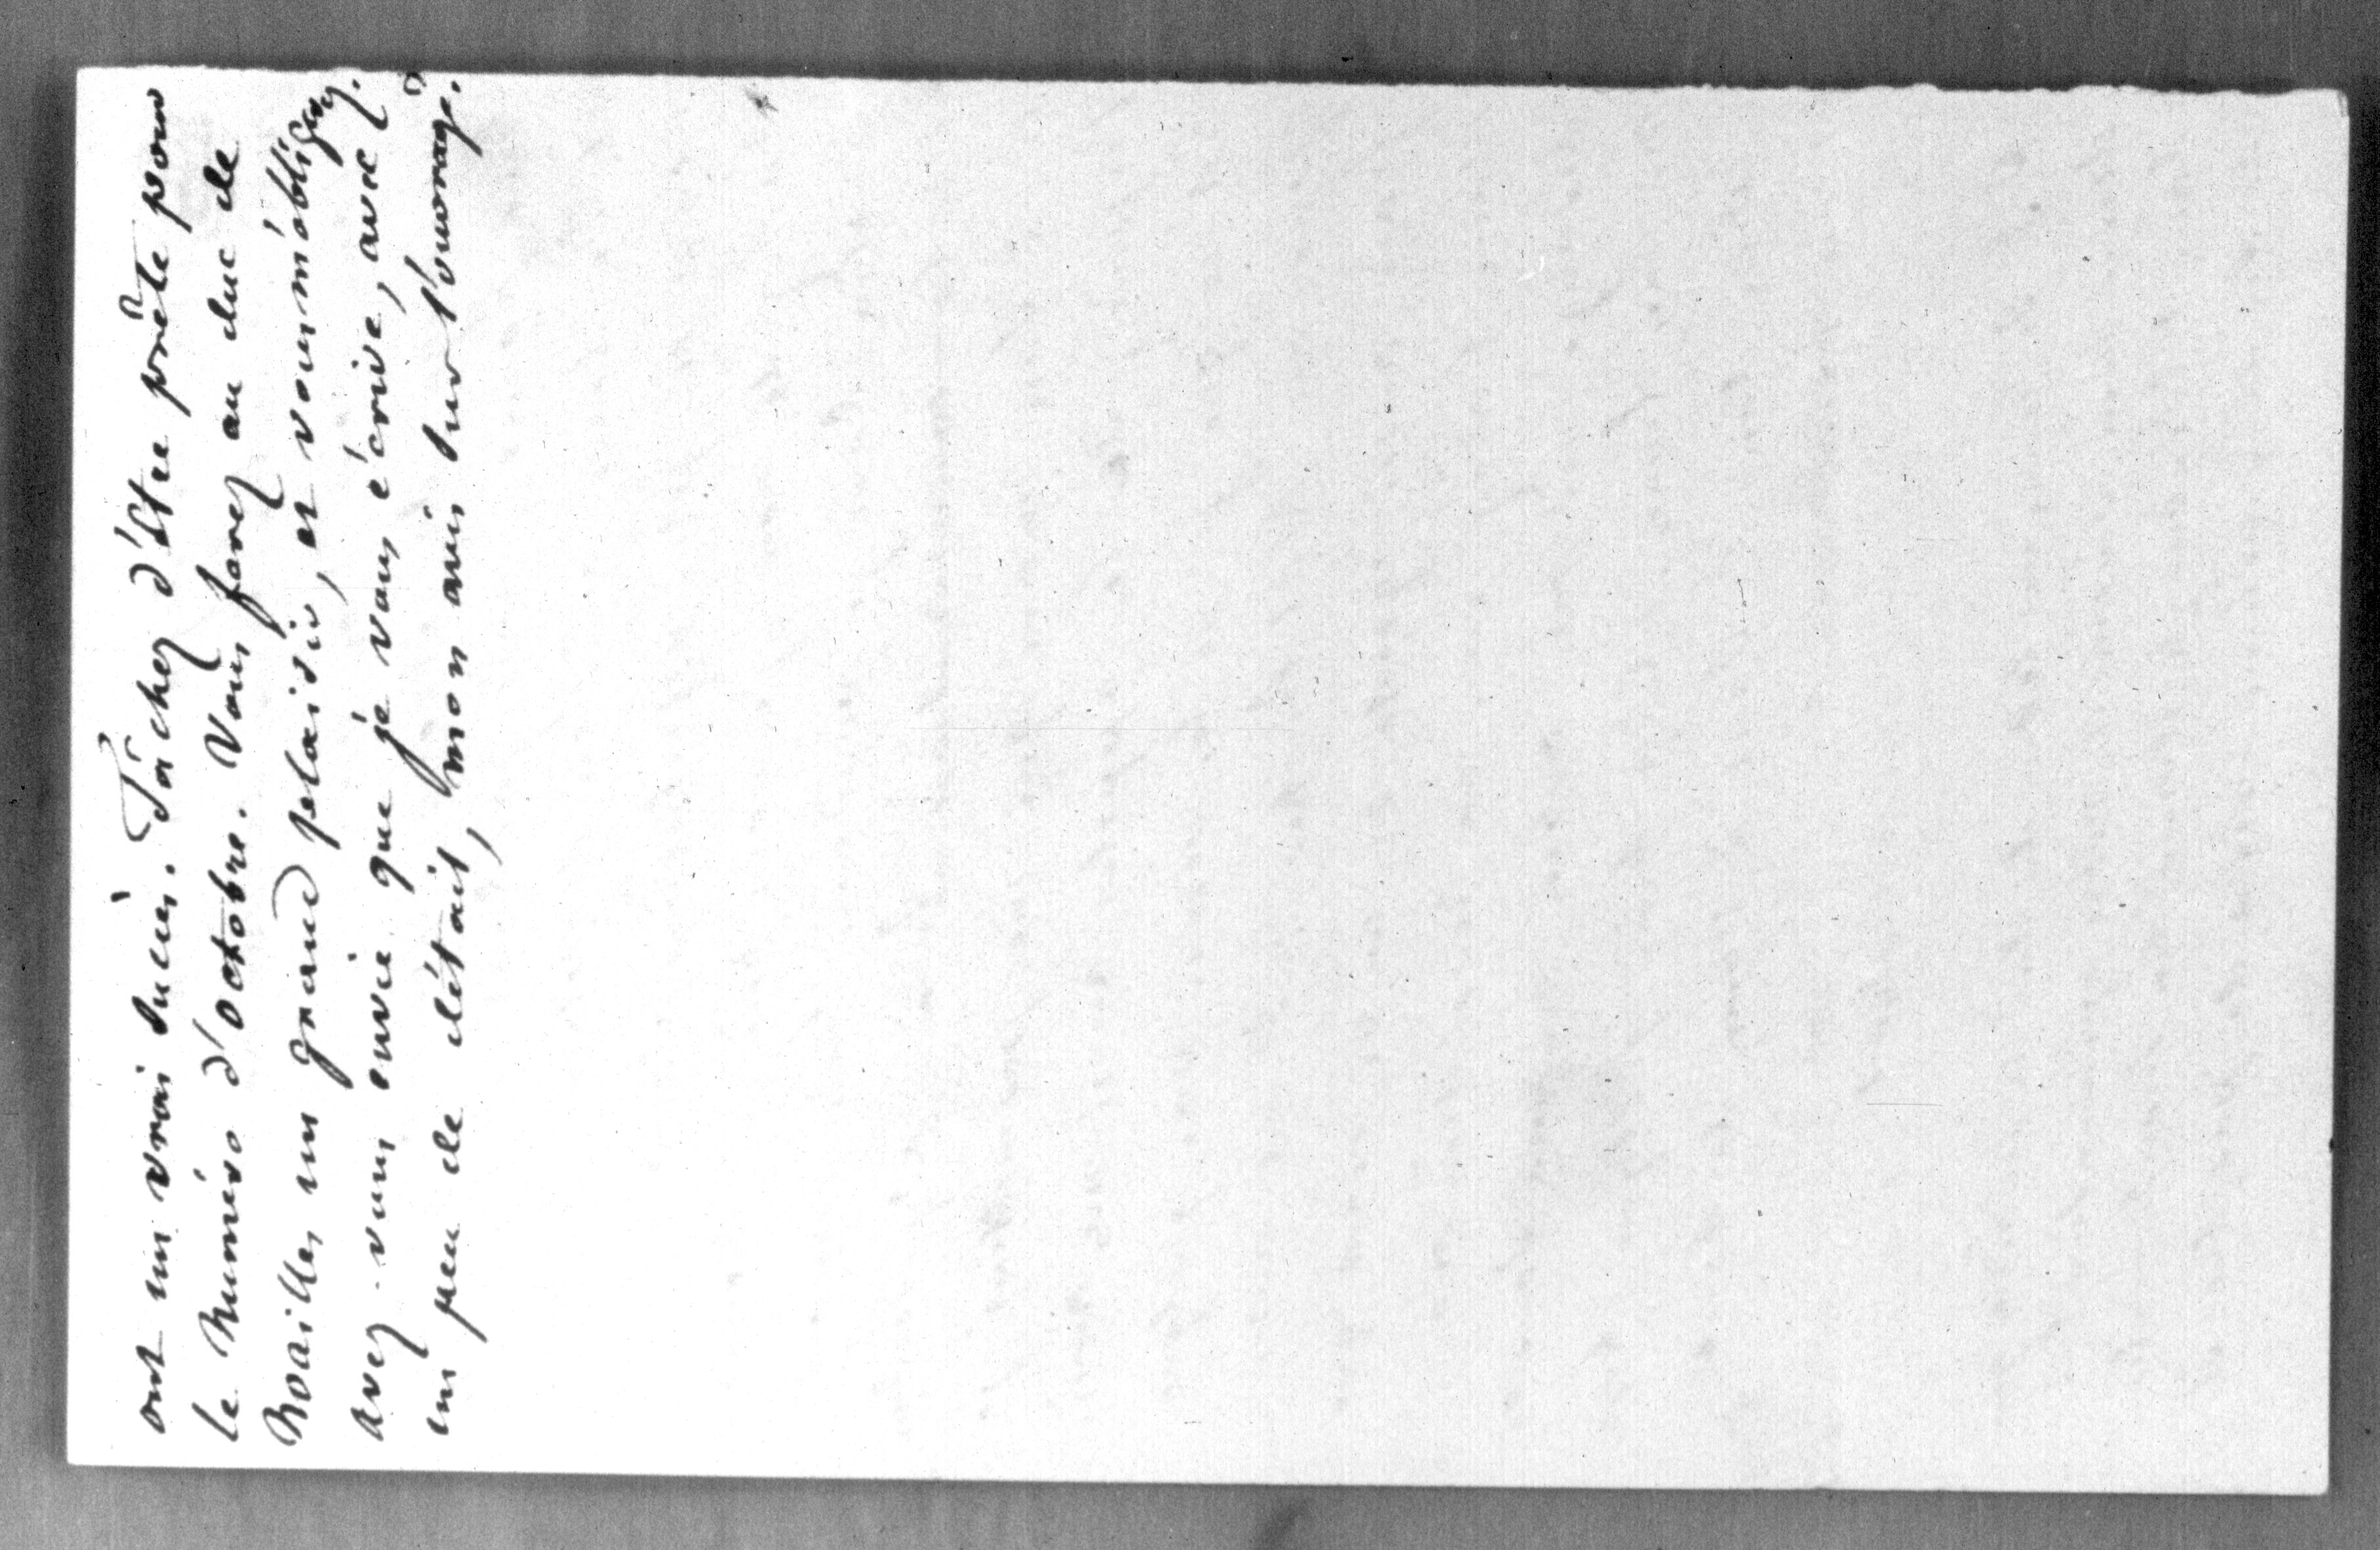 ont un vrai succès. Tâchez d'être prête pour
le numéro d'octobre. Vous ferez au duc de
Noailles un grand plaisir, et vous m'obligerez.
avez-vous envie que je vous écrive, avec
un peu de détail, mon avis sur l'ouvrage?